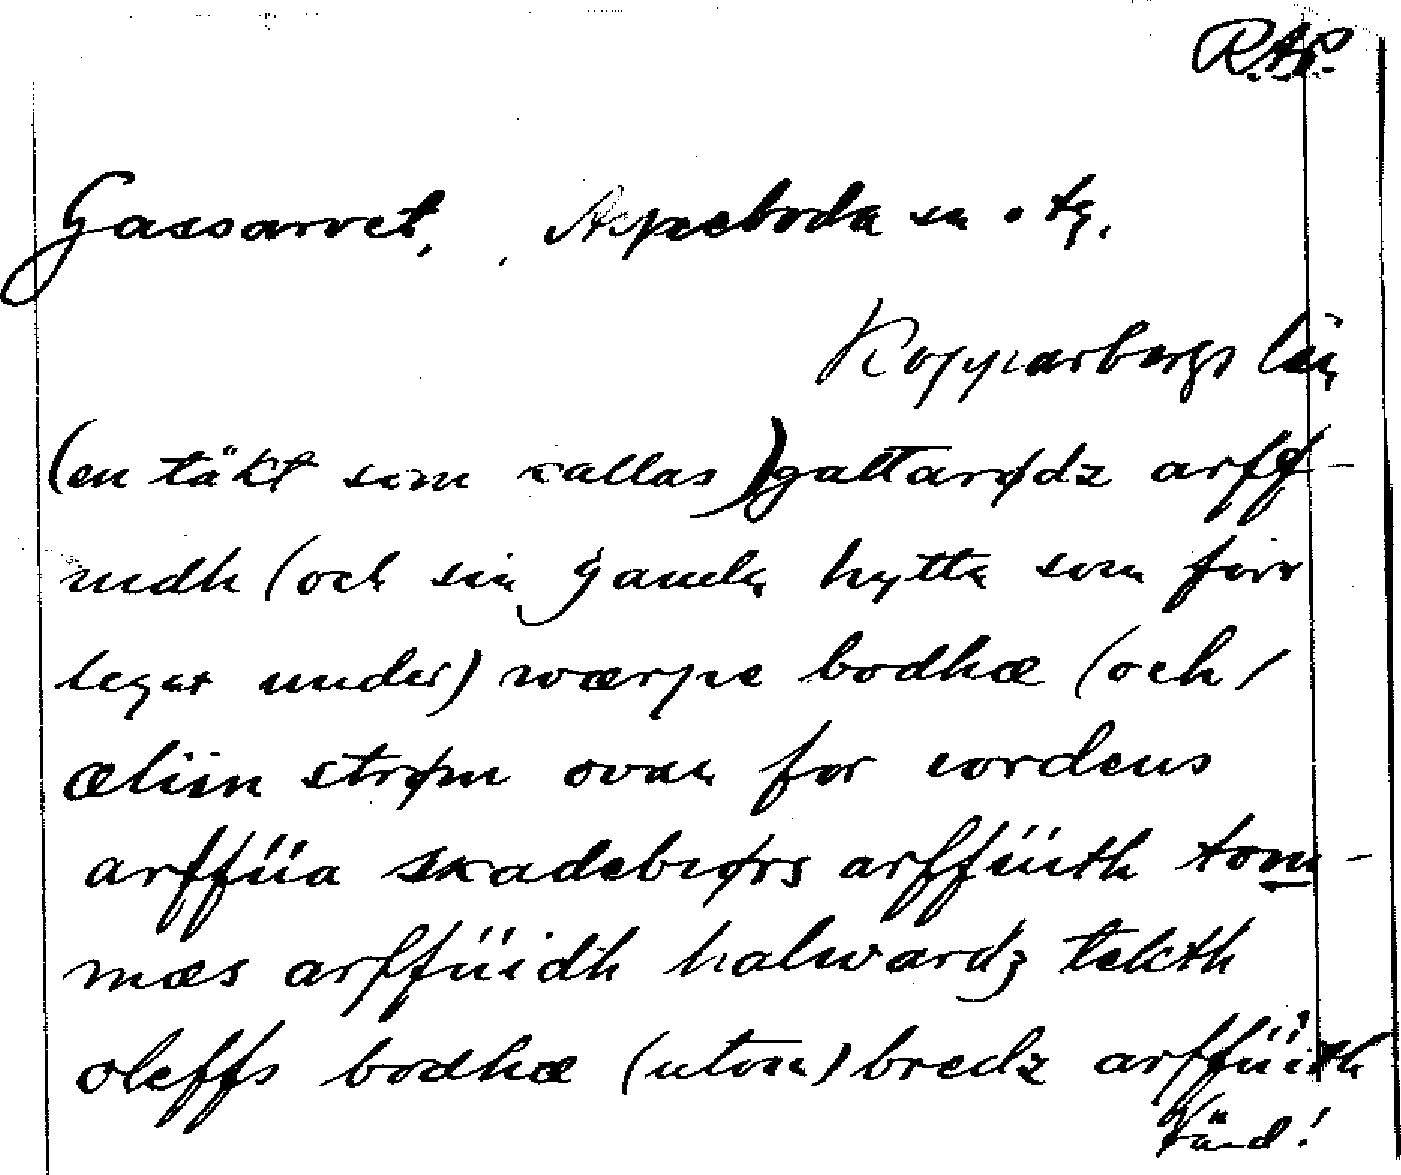 R.A.P.
Gassarvet, Aspeboda sn o tg.
Kopparbergs län
(en täkt som kallas) gattarødz arff-
uidh (och sin gamla hytta som förr
legat under) wærpe bodhæ (och)
æliin strøm ovan for iordens
arffüa skadebiørs arffüith tom-
mæs arffüidh halwardz tekth
oleffs bodhæ (utom) bredz arffüith
Vänd!